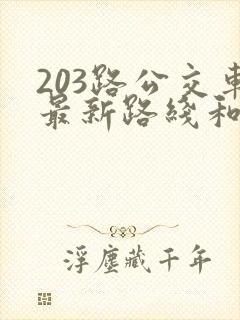 203路公交車
最新路綫和
浮塵藏千年